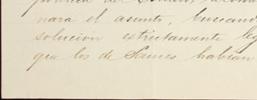 nara el asunto, buscand
solución estrictamente leg
que los de habían